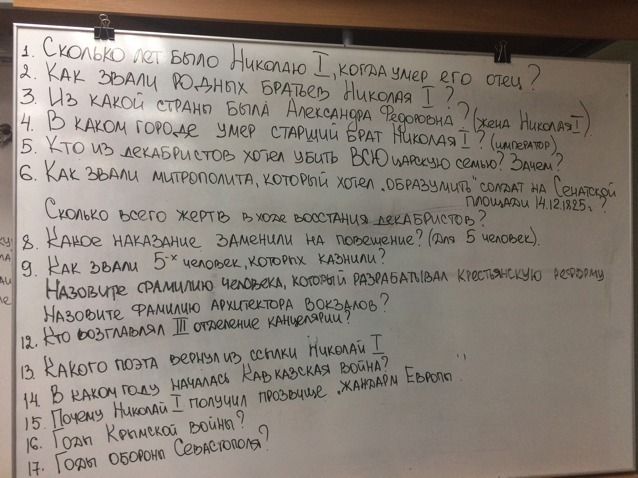 1. Сколько лет было Николаю I, когда умер его отец?
2. Как звали родных братьев Николая I?
3. Из какой страны была Александра Федоровна? (жена Николая I)
4. В каком городе умер старший брат Николая I? (император)
5. Кто из декабристов хотел убить ВСЮ царскую семью? Зачем?
6. Как звали митрополита, который хотел „образумить" солдат на Сенатской
площади 14.12.1825г?
Сколько всего жертв в ходе восстания декабристов?
8. Какое наказание заменили на повешение? (для 5 человек).
9. Как звали 5-х человек, которых казнили?
Назовите фамилию человека, который разрабатывал крестьянскую реформу
Назовите фамилию архитектора вокзалов?
12. Кто возглавлял III отделение канцелярии?
13. Какого поэта вернул из ссылки Николай I
14. В каком году началась Кавказская война?
15. Почему Николай I получил прозвище „жандарм Европы"
16. Годы Крымской войны?
17. Годы обороны Севастополя?